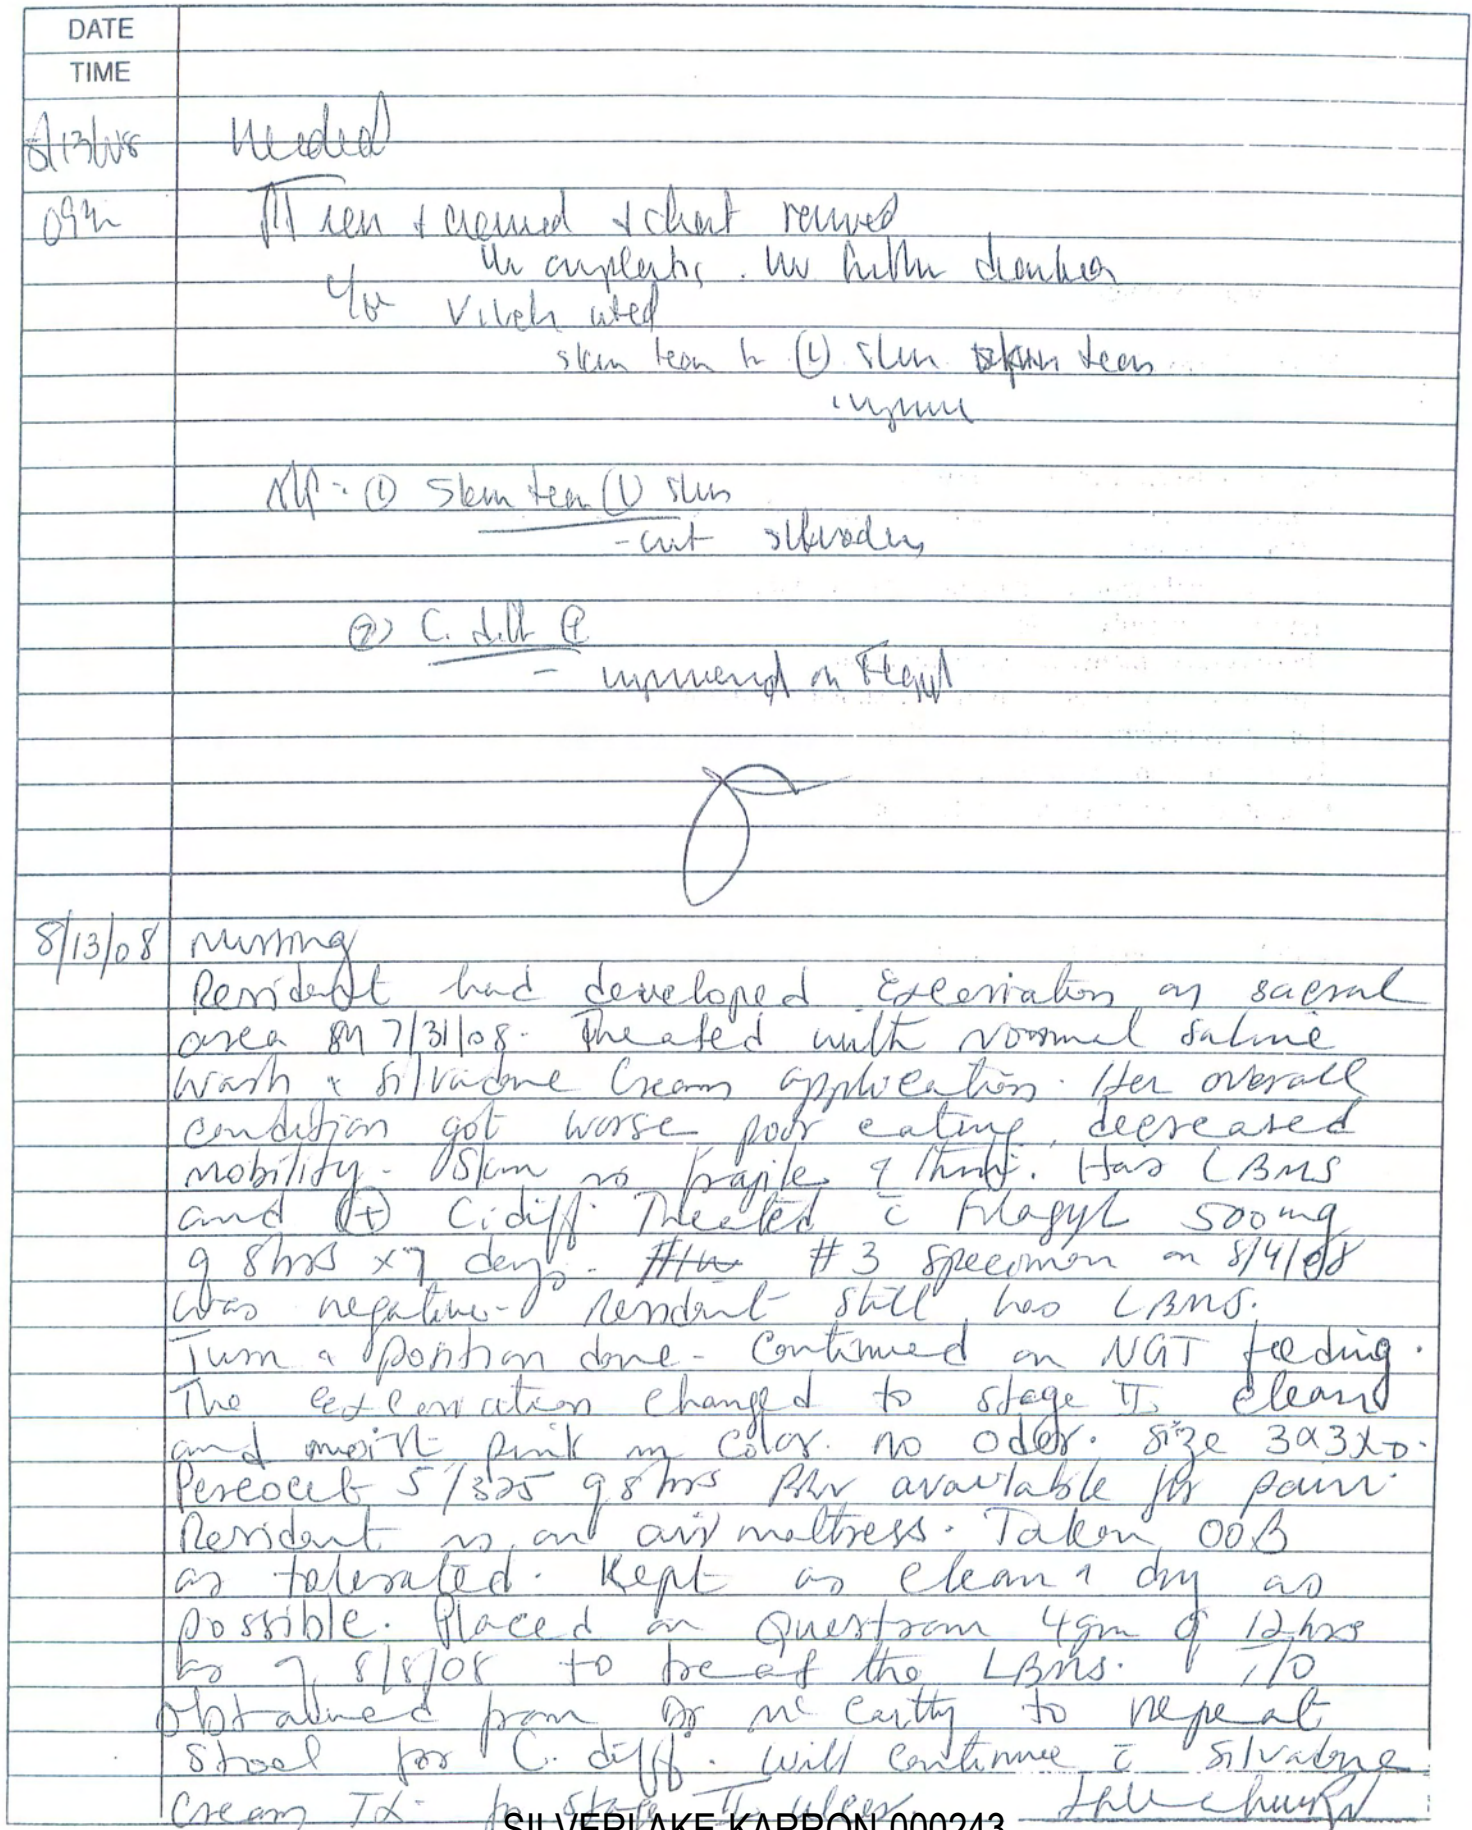 DATE
TIME
8/13/08 Medical
Pt seen + examined + chart reviewed
No complaints. No further diarrhea
O/E Vitals noted
skin tear to (L) shin skin tear
A/P: ① Skin tear (L) shin
- cont silvadene
② C. diff
- improved on Flagyl
8/13/08 Nursing
Resident had developed Excoriation on sacral
area on 7/31/08. Treated with normal saline
wash & silvadene Cream application. Her overall
condition got worse poor eating, decreased
mobility. Skin is fragile & thin. Has LBMS
and (+) C. diff. Treated c̄ Flagyl 500mg
q 8hrs x7 days. #3 specimen on 8/4/08
was negative. Resident still has LBMS.
Turn & position done. Continued on NGT feeding.
The excoriation changed to stage II, clean
and moist pink in color. no odor. size 3x3x0.
Percocet 5/325 q 8hrs PRN available for pain.
Resident is on air mattress. Taken OOB
as tolerated. Kept as clean & dry as
possible. Placed on Questran 4gm q 12hrs
8/8/08 to treat the LBMS. T/O
obtained from Dr McCarthy to repeat
stool for C. diff. will continue c̄ silvadene
Cream TX for stage II ulcer RN
SILVERLAKE KAPRON 000243